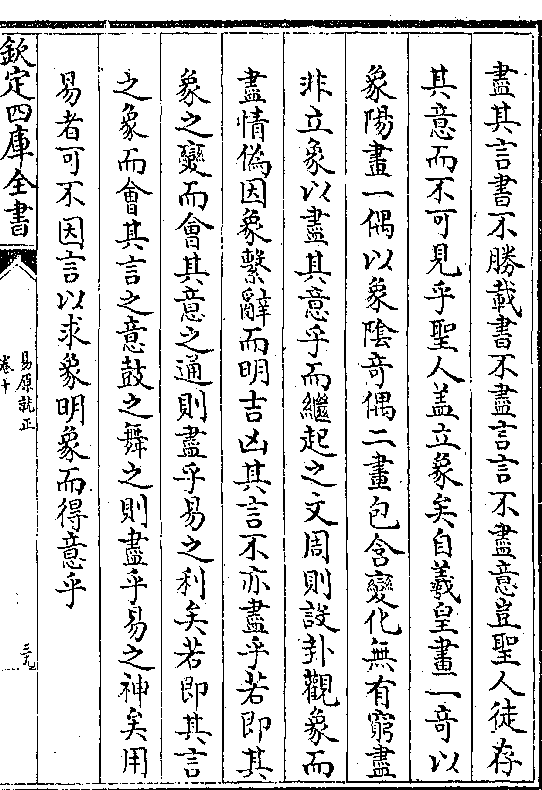 盡其言書不勝載書不盡言言不盡意豈聖人徒存
其意而不可見乎聖人盖立象矣自羲皇畫一奇以
象陽畫一偶以象陰奇偶二畫包含變化無有窮盡
非立象以盡其意乎而繼起之文周則設卦觀象而
盡情偽因象繫辭而明吉凶其言不亦盡乎若即其
象之變而會其意之通則盡乎易之利矣若即其言
之象而會其言之意鼓之舞之則盡乎易之神矣用
易者可不因言以求象明象而得意乎
欽定四庫全書
易原就正
卷十
三九